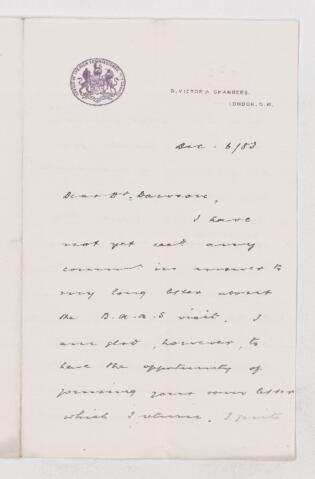 9, VICTORIA CHAMBERS,
LONDON, S.W.
Dec. 6/83
Dear Dr. Dawson,
I have
not yet recd any
commn. in answer to
my long letter about
the B.A.A.S visit. I
am glad, however, to
have the opportunity of
perusing your own letter
which I return. I quite